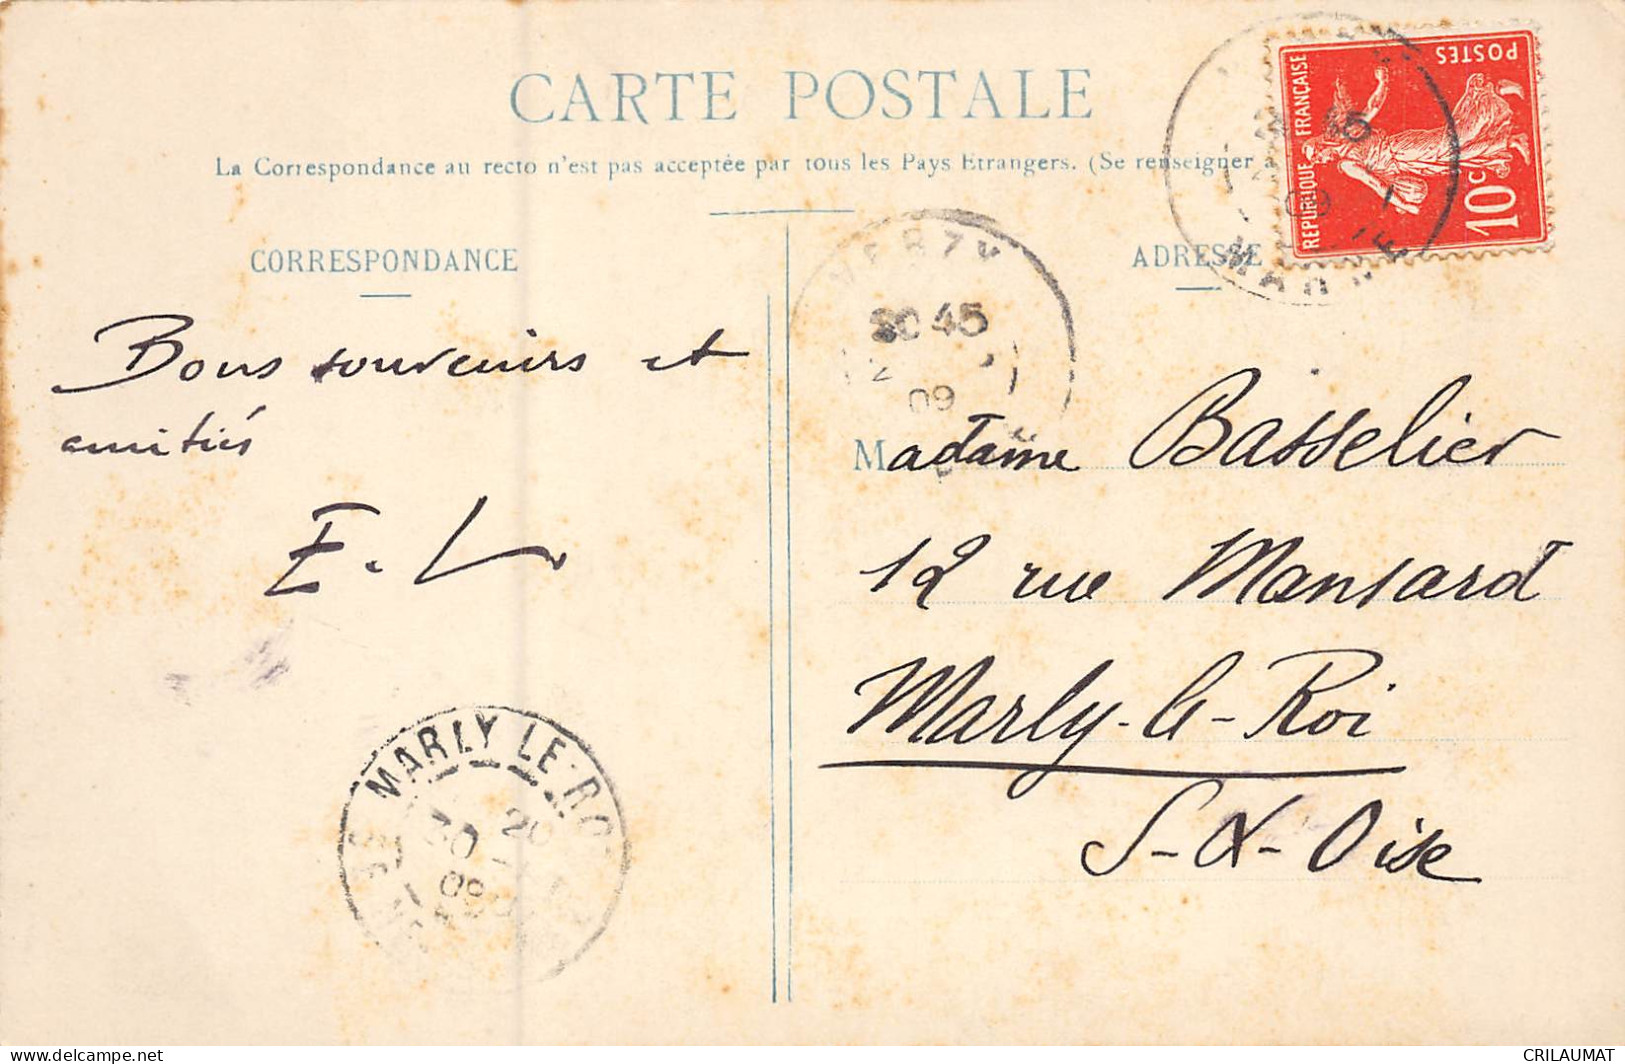 CARTE POSTALE
La Correspondance au recto n'est pas acceptée par tous les Pays Etrangers. (Se renseigner à
CORRESPONDANCE
ADRESSE
POSTES
REPUBLIQUE FRANÇAISE
10c
MARNE
VERZY
20 45
09
Bons souvenirs et
amitiés
E. L
Madame Basselier
12 rue Mansard
Marly-le-Roi
S-&-Oise
MARLY LE-RO
09
delcampe.net
CRILAUMAT